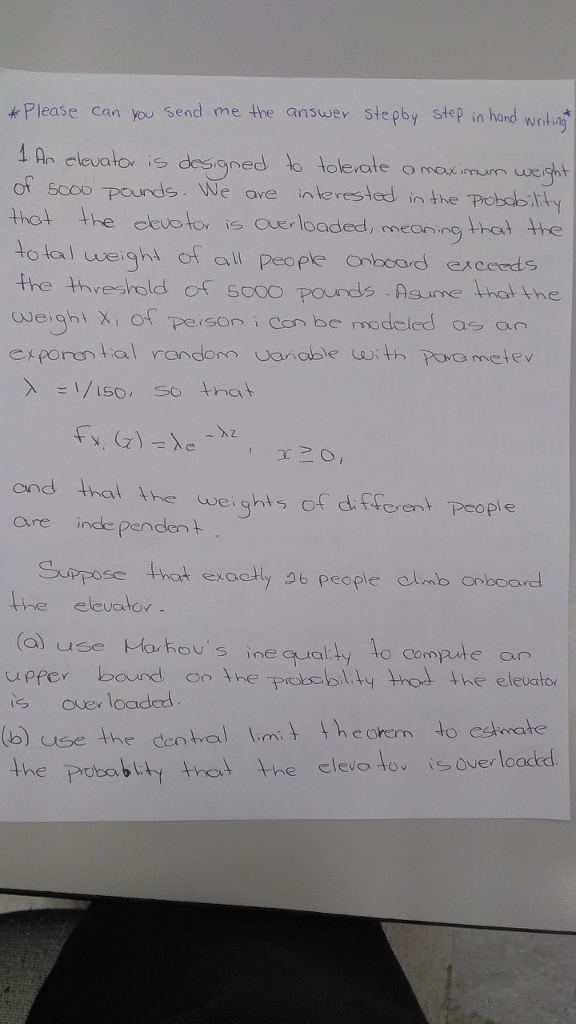 *Please can you send me the answer stepby step in hand writing*
1. An elevator is designed to tolerate a maximum weight
of 5000 pounds. We are interested in the probability
that the elevator is overloaded, meaning that the
total weight of all people onboard exceeds
the threshold of 5000 pounds. Asume that the
weight Xi of person i can be modeled as an
exponential random variable with parameter
λ = 1/150, so that
fxi(x) = λe^-λx, x ≥ 0,
and that the weights of different people
are independent.
Suppose that exactly 26 people climb onboard
the elevator.
(a) use Markov's inequality to compute an
upper bound on the probability that the elevator
is overloaded.
(b) use the central limit theorem to estimate
the probablity that the elevator is overloaded.